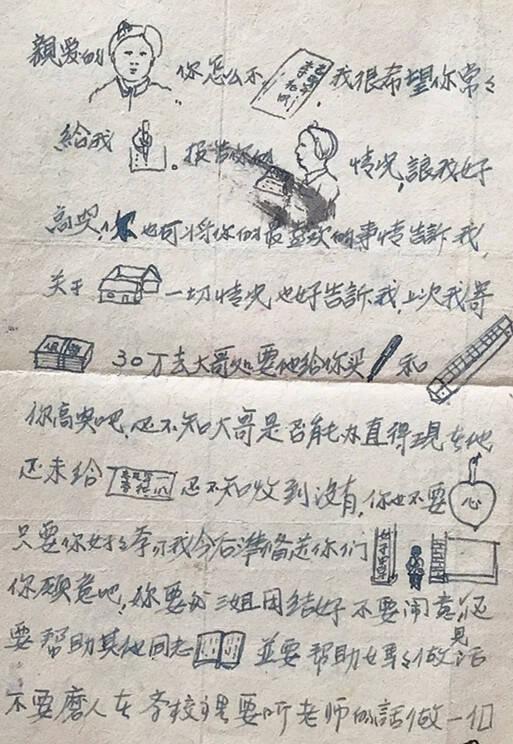 親爱的 你怎么不 我很希望你常々
給我 。报告你的 情况,讓我好
高兴,你也可将你的最喜欢的事情告訴我,
关于 一切情况也好告訴我,上次我寄
30万去大哥処要他給你买 和
你高兴吧,还不知大哥是否能办直得現在他
还未给 还不知收到没有,你也不要 心
只要你好々学习我今后準备送你们
你願意吧,你要与三姐团结好不要闹意
見还要帮助其他同志 並要帮助妈々做活
不要磨人在学校裡要听老师的話做一個